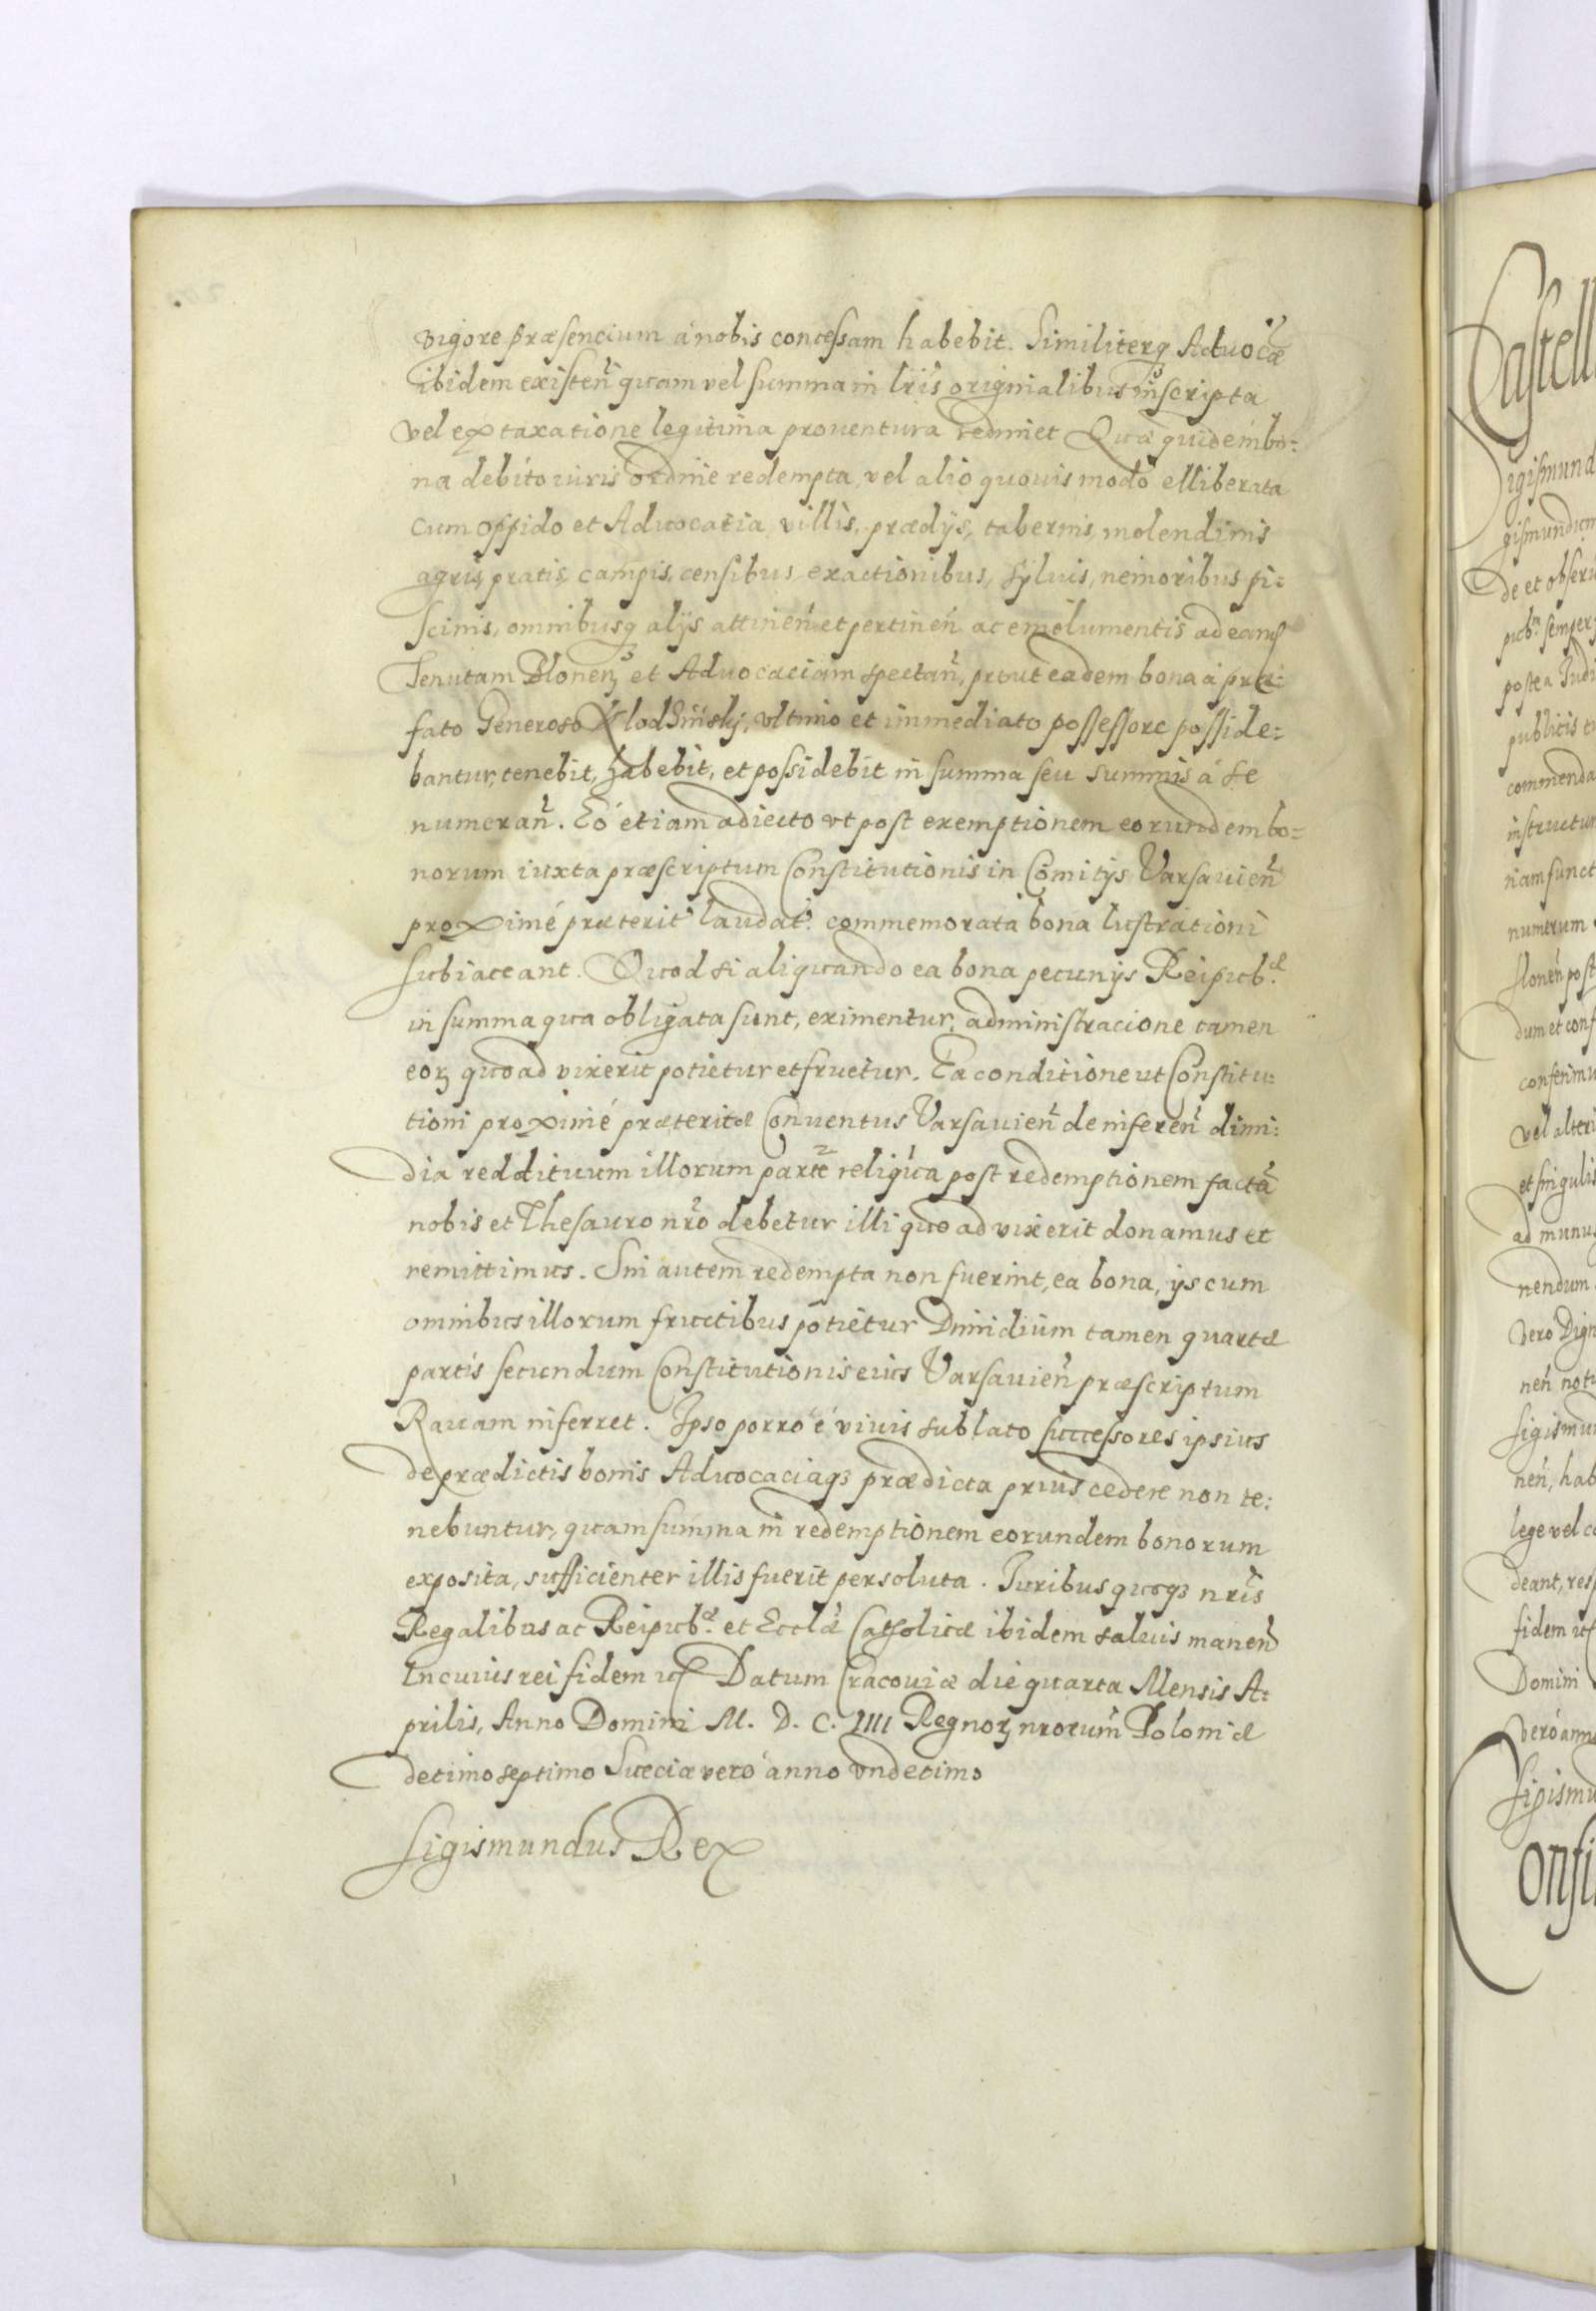 vigore præsencium à nobis concessam habebit. Similiterq3 Aduocãe
ibidem existeñ quam vel summa in lr̃is originalibus inscripta
vel ex taxatione legitima prouentura redimet Quæ quidem bo:
na debito iuris ordine redempta, vel alio quouis modo elliberata
cum oppido et Aduocatia villis, prædijs, tabernis, molendinis
agris, pratis, campis, censibus, exactionibus, syluis, nemoribus pi:
scinis, omnibusq3 alijs attineñ et pertineñ ac emolumentis ad eam
Tenutam Blonen3 et Aduocaciam spectañ, prout eadem bona à præ:
fato Generoso Klodʒinsky, vltimo et immediato possessore posside:
bantur, tenebit, habebit, et possidebit in summa seu summis á se
numerañ. Eó etiam adiecto vt post exemptionem eorundem bo=
norum iuxta præscriptum Constitutionis in Comitijs Varsauieñ
proximé præterit laudat: commemorata bona lustrationi
subiaceant. Quod si aliquando ea bona pecunijs Reipub:æ
in summa qua obligata sunt, eximentur, administracione tamen
eoꝝ quoad vixerit potietur et fruetur. Ea conditione ut Constitu:
tioni proximé præteritæ Conuentus Varsauieñ de infereñ dimi:
dia reddituum illorum parte reliqua post redemptionem factã
nobis et Thesauro nr̃o debetur illi quoad vixerit donamus et
remittimus. Sin autem redempta non fuerint, ea bona, ijs cum
omnibus illorum fructibus potietur Dimidium tamen quartæ
partis secundum Constitutionis eius Varsauieñ præscriptum
Rauam inferret. Ipso porro é viuis sublato successores ipsius
de prædictis bonis Aduocaciaq3 prædicta prius cedere non te:
nebuntur, quam summa in redemptionem eorundem bonorum
exposita, sufficienter illis fuerit persoluta. Iuribus quoq3 nr̃is
Regalibus ac Reipub:æ et Ecclæ Catholicæ ibidem saluis maneñ
In cuius rei fidem etc Datum Cracouiæ die quarta Mensis A:
prilis, Anno Domini M. D. C. IIII Regnoꝝ nrorum Poloniæ
decimo septimo Sueciæ vero anno vndecimo
Sigismundus Rex